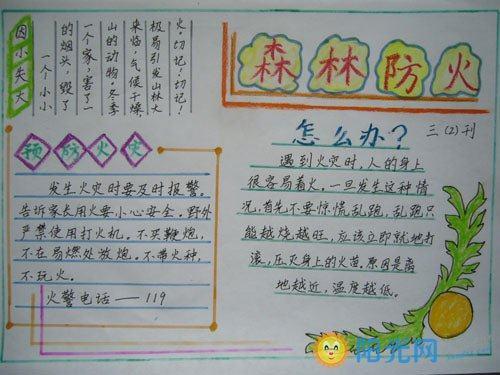 因小失大
一个小小
的烟头,毁了
一个家,害了一
山的动物。冬季
来临,气候干燥
极易引发山林大
火。切记!切记!
森林防火
三(2)刊
预防火灾
发生火灾时要及时报警。
告诉家长用火要小心安全。野外
严禁使用打火机。不买鞭炮,
不在易燃处放炮。不带火种,
不玩火。
火警电话——119
怎么办?
遇到火灾时,人的身上
很容易着火,一旦发生这种情
况,首先不要惊慌乱跑,乱跑只
能越烧越旺,应该立即就地打
滚,压灭身上的火苗。原因是离
地越近,温度越低。
阳光网